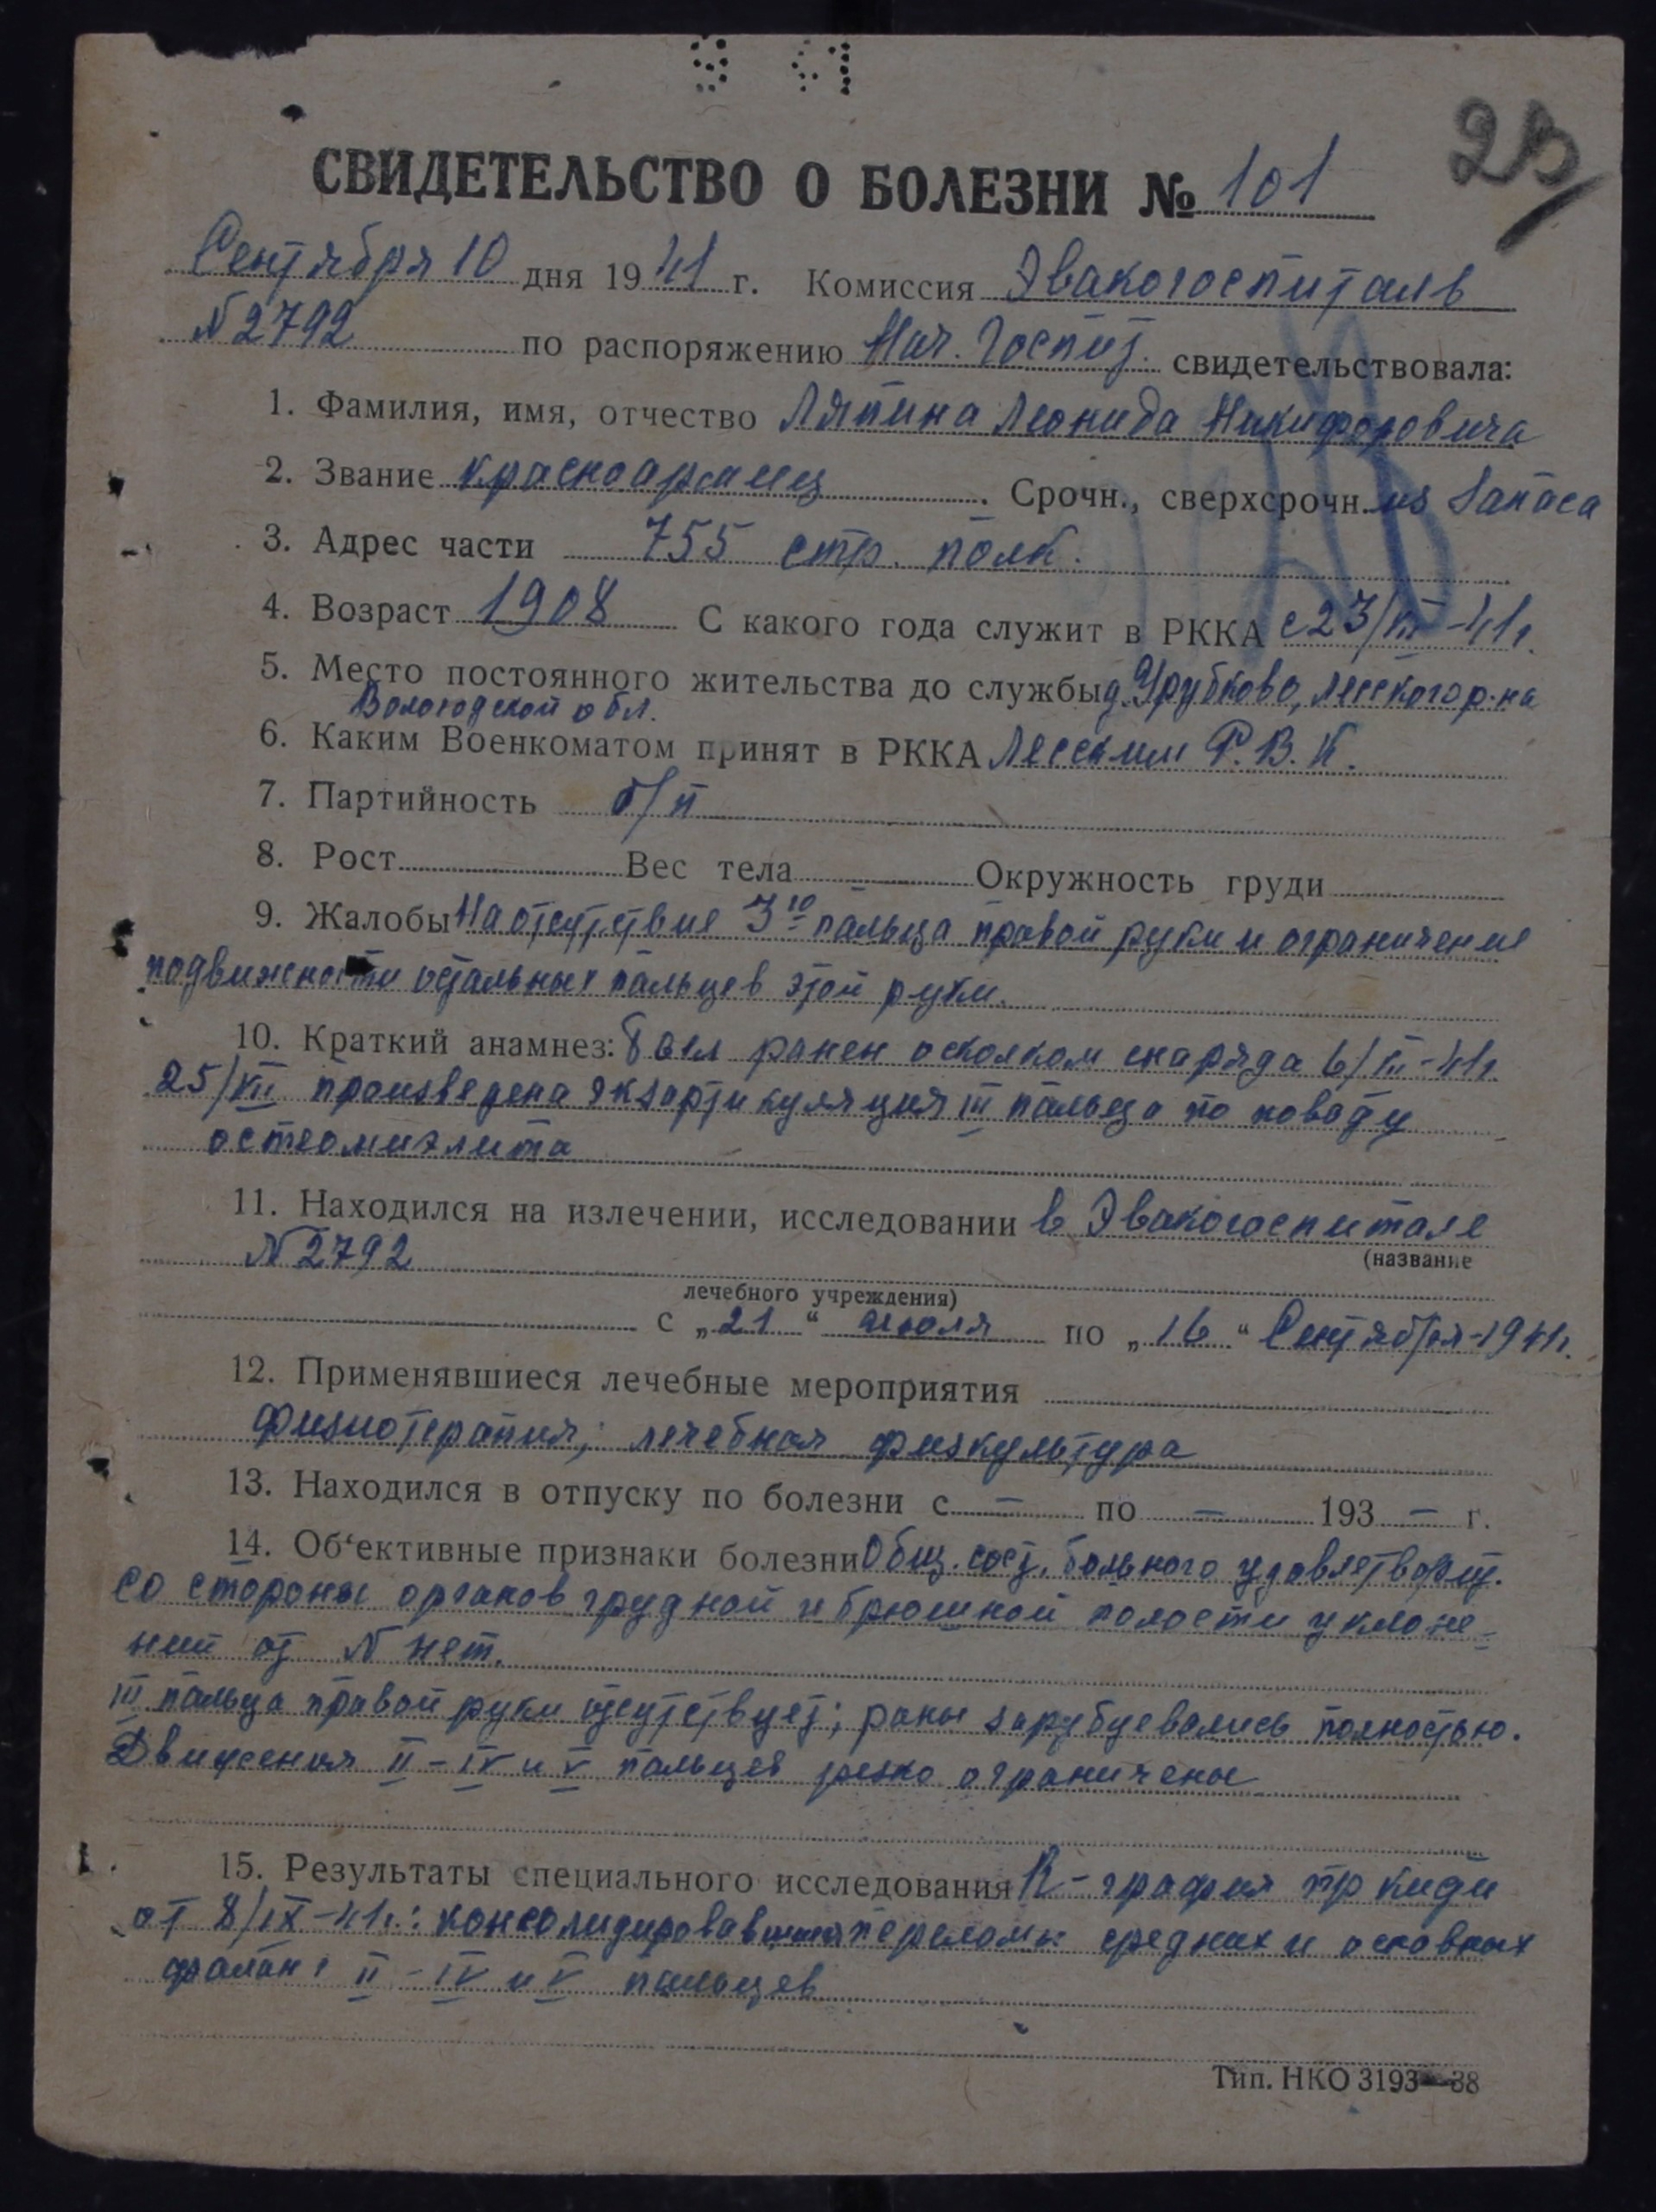 23/
СВИДЕТЕЛЬСТВО О БОЛЕЗНИ № 101
Сентября 10 дня 1941 г. Комиссия Эвакогоспиталь
№ 2792 по распоряжению Нач. Госпит. свидетельствовала:
1. Фамилия, имя, отчество Ляпина Леонида Никифоровича
2. Звание красноармеец. Срочн., сверхсрочн. из запаса
3. Адрес части 755 стр. полк.
4. Возраст 1908 С какого года служит в РККА с 23/VI-41г.
5. Место постоянного жительства до службы д. Трубково, Лесского р-на
Вологодской обл.
6. Каким Военкоматом принят в РККА Лесским Р.В.К.
7. Партийность б/п
8. Рост Вес тела – Окружность груди
9. Жалобы На отсутствие 3го пальца правой руки и ограничение
подвижности остальных пальцев этой руки.
10. Краткий анамнез: Был ранен осколком снаряда 6/VII-41г.
25/VII произведена экзартикуляция III пальца по поводу
остеомиэлита
11. Находился на излечении, исследовании в Эвакогоспитале
№ 2792
(название
лечебного учреждения)
с „21“ июля по „16“ Сентября-1941г.
12. Применявшиеся лечебные мероприятия
физиотерапия; лечебная физкультура
13. Находился в отпуску по болезни с – по – 193 – г.
14. Об‘ективные признаки болезни Общ. сост. больного удовлетворит.
Со стороны органов грудной и брюшной полости уклоне-
ний от N нет.
III пальца правой руки отсутствует; раны зарубцевались полностью.
Движения II – IV и V пальцев резко ограничены
15. Результаты специального исследования R-графия пр кисти
от 8/IX-41г.: консолидировавшиеся переломы средних и основных
фаланг II – IV и V пальцев
Тип. НКО 3193—38